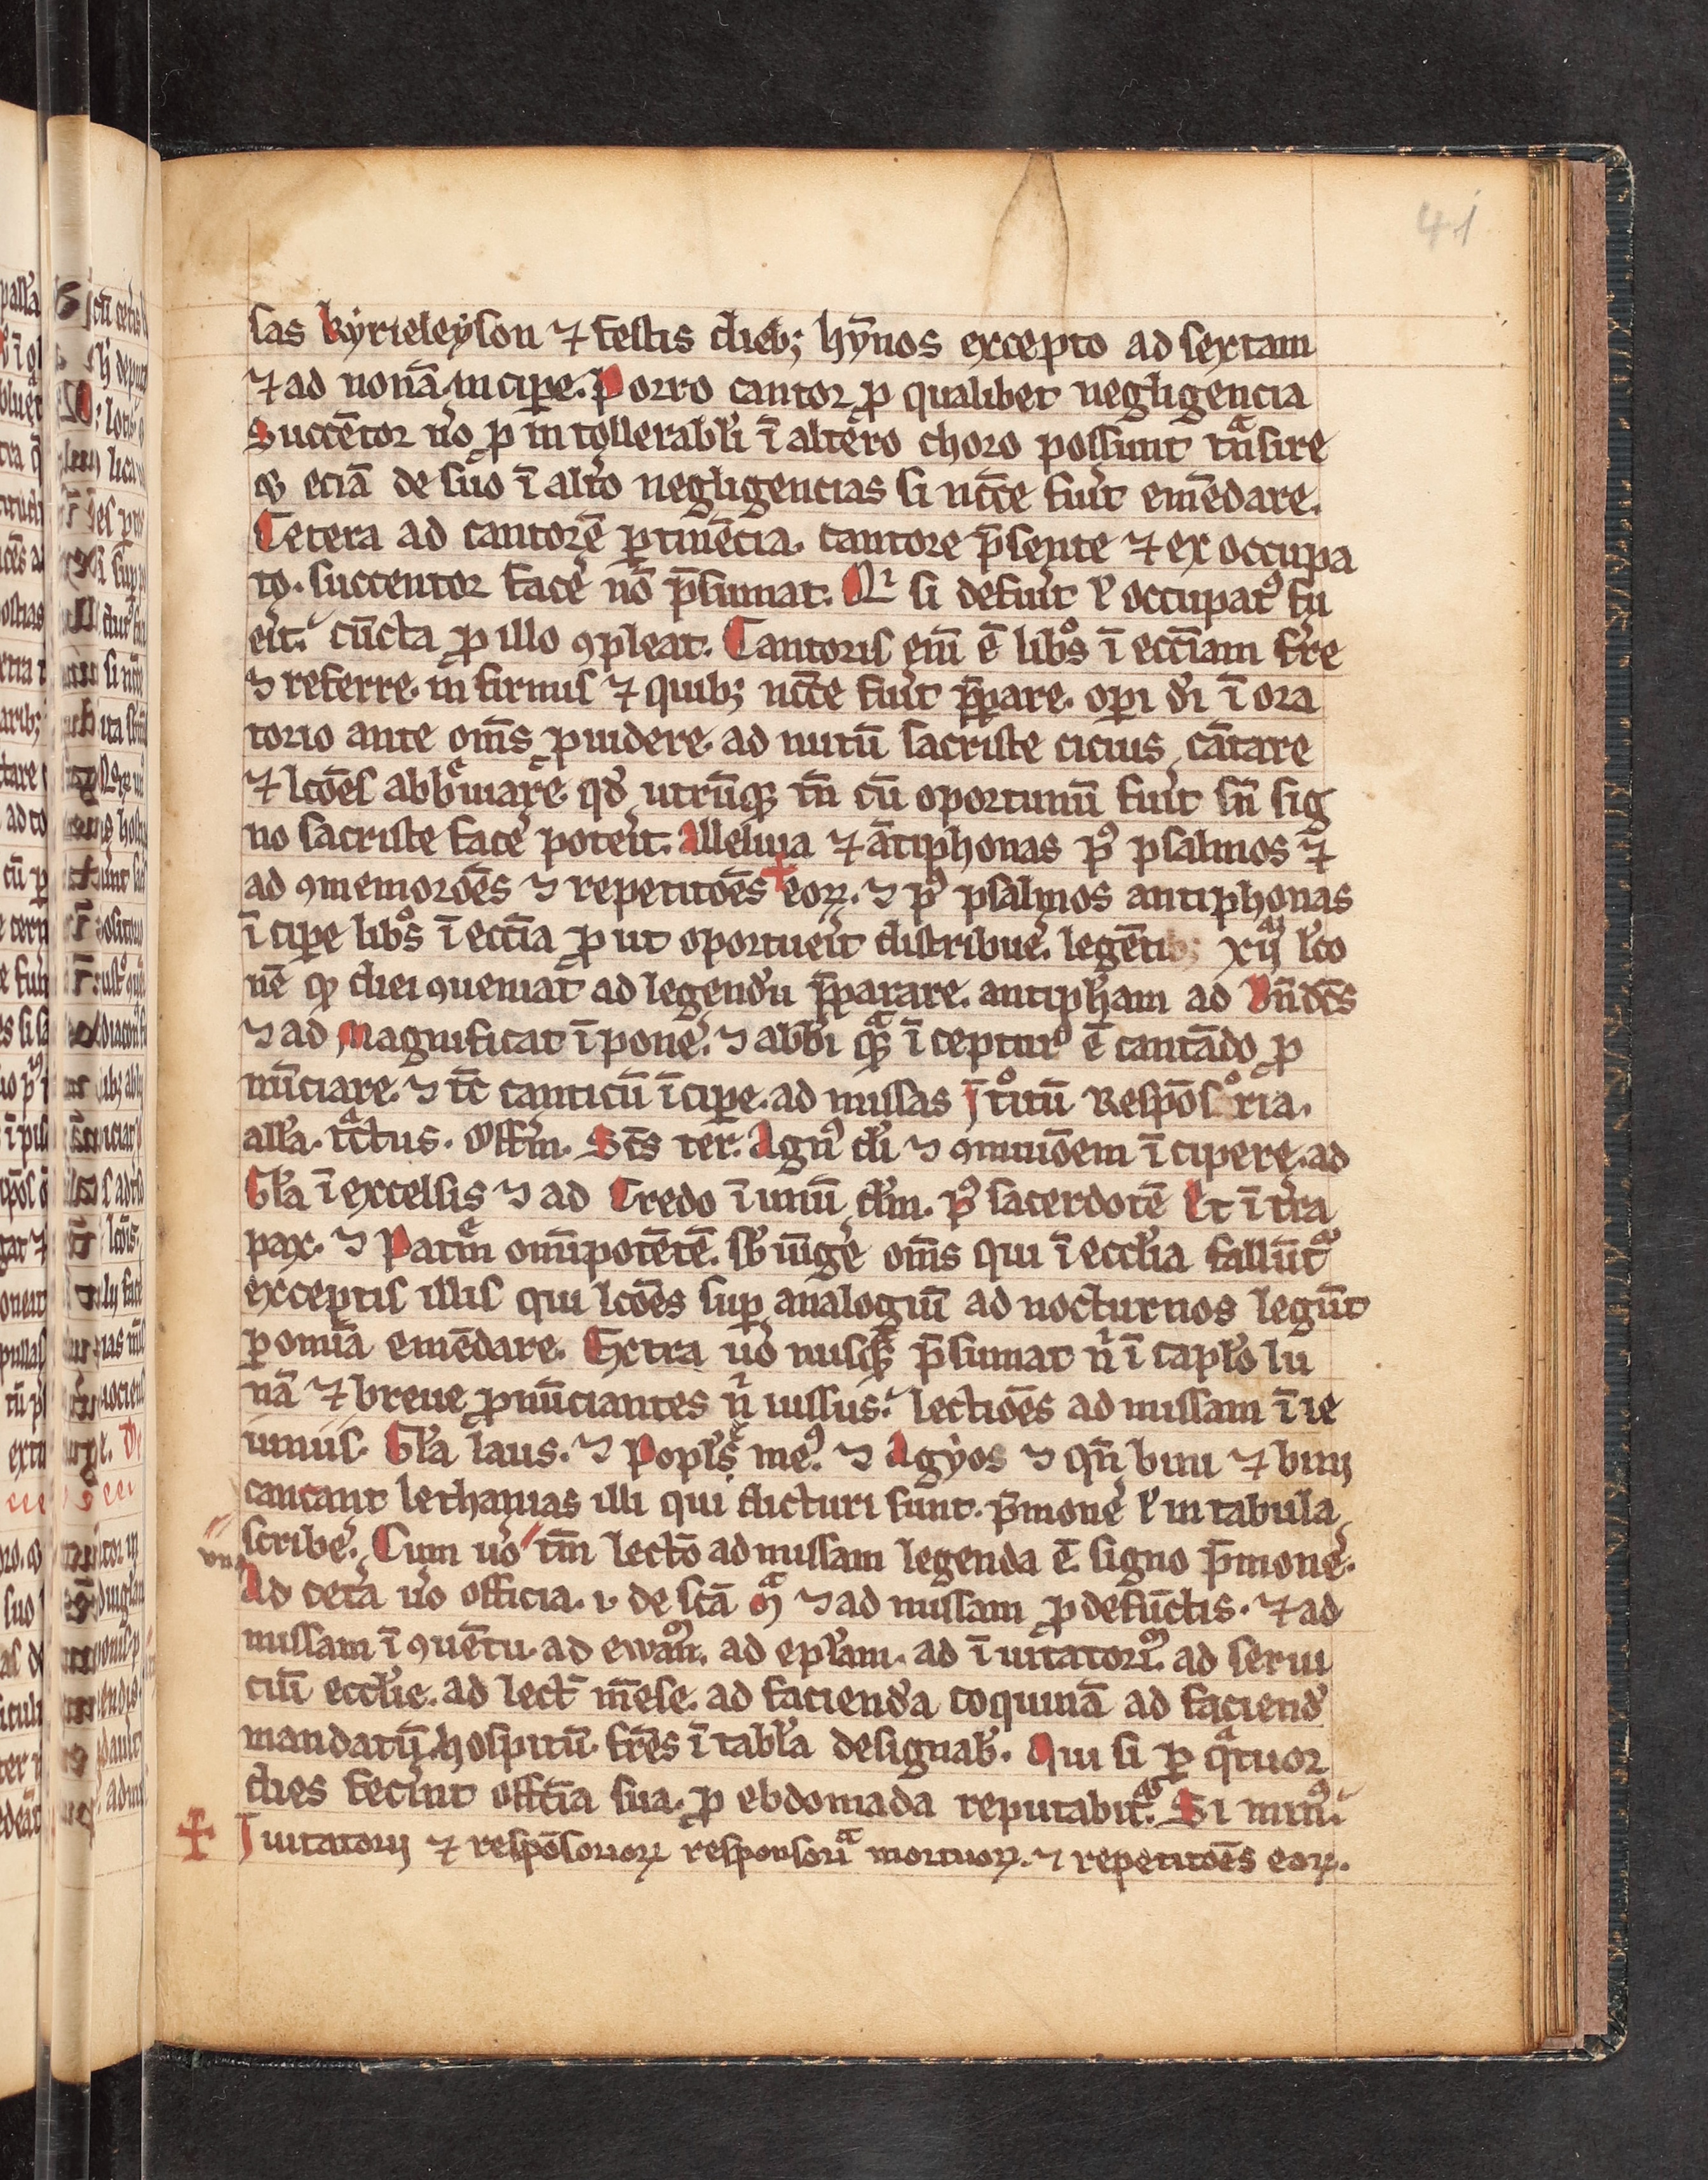 41
sas kyrieleyson ⁊ festis dieb; hȳnos excepto ad sextam
⁊ ad nonā incipe. Porro cantor ꝓ qualibet negligencia
Succētor u̾o ꝓ intollerabl̾i ī altero choro possunt tnᷓsire
ꝙ eciā de suo ī alt̾o negligencias si nc̄ce fu̾it emēdare.
Cetera ad cantorē ꝑtinēcia. cantore p̄sente ⁊ ex occupa
to. succentor face̾ nō p̄sumat. Qͥ si defu̾it ł occupatꝰ fu
e̾it. cūcta ꝓ illo ꝯpleat. Cantoris em̄ ē libͦs ī eccīam f̾re
⁊ referre. in firmis ⁊ quib; nc̄ce fu̾it p̄parare. opi di̾ ī ora
torio ante om̄s ꝓuidere. ad nutū sacriste cicius cātare
⁊ lc̄oēs abbᷓuiare. qd̾ utrūqꝫ tn̄ cū oportunū fu̾it sn̄ sig
no sacriste face̾ pote̾it. Alleluia ⁊ ātiphonas pꝰ psalmos ⁊
ad ꝯmemorōes ⁊ repetitōes eoꝝ. ⁊ pꝰ psalmos antiphonas
ī cipe libͦs ī eccīa ꝓ ut oportue̾it distribue̾. legētib; xij lc̄o
nē ꝙ diei ꝯueniat ad legendu̾ p̄parare. antiph̾am ad Bn̄dc̄s
⁊ ad Magnificat īpone̾. ⁊ abbi̾ qᷓ ī cepturꝰ ē cantādo ꝓ
nūciare. ⁊ tc̄ canticū īcipe. ad missas Īͦtitū Respōsoria.
all̾a. tᷓctus. Off̾m. Sc̄s ter̾. Agnꝰ di̾ ⁊ ꝯmuiōem ī cipere. ad
Gl̾a ī excelsis ⁊ ad Credo ī unū dm̾. pꝰ sacerdotē Et ī t̾ra
pax. ⁊ Patrᷓm om̄ipotētē. sb̾ iūge̾ om̄s qui ī eccl̾ia fallūtᷣ
exceptis illis qui lc̄oēs suꝑ analogiū ad nocturnos legūt
ꝑ omīa emēdare. Extra uo̾ nusqᷓ p̄sumat nͥ ī capl̾o lu
nā ⁊ breue ꝓnūciantes nͥ iussus. lectiōes ad missam ī ie
iuniis. Gl̾a laus. ⁊ Popl̾s meꝰ. ⁊ Agyos ⁊ qn̄ bini ⁊ bini
cantant lethanias illi qui dicturi sunt. p̄mone̾ ł in tabula
scribe̾. Cum uo̾ tm̄ lectō ad missam legenda ē. signo p̄mone̾.
una
Ad cet̾a uo̾ officia. i. de scā mᷓ ⁊ ad missam ꝓ defūctis. ⁊ ad
missam ī ꝯuētu. ad ewāꝫ. ad epl̾am. ad ī uitatoriꝫ. ad serui
ciū eccl̾ie. ad lect̾ mēse. ad faciend̾a coquinā ad faciend̾
mandatū hospitū. fr̄es ī tabl̾a designab̾. Qui si ꝑ qᷓtuor
dies fec̾int offīcia sua. ꝓ ebdomada reputabitᷣ. Si minꝰ.
Iuitatorij ⁊ respōsorioꝝ responsoriᷓ mortuoꝝ. ⁊ repetitōes eoꝝ.